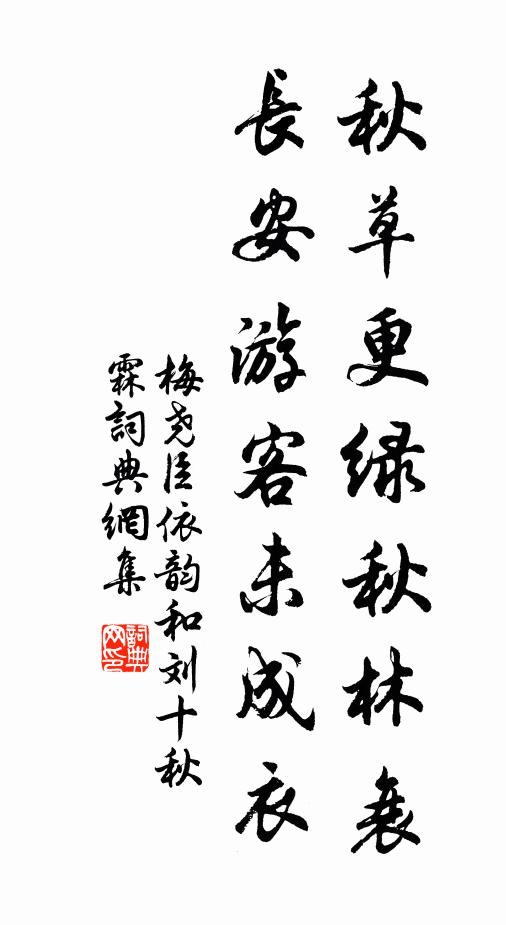 秋草更绿秋林衰
長安游客未成衣
梅尧臣依韵和刘十秋
霖詞典網集
詞典
网印